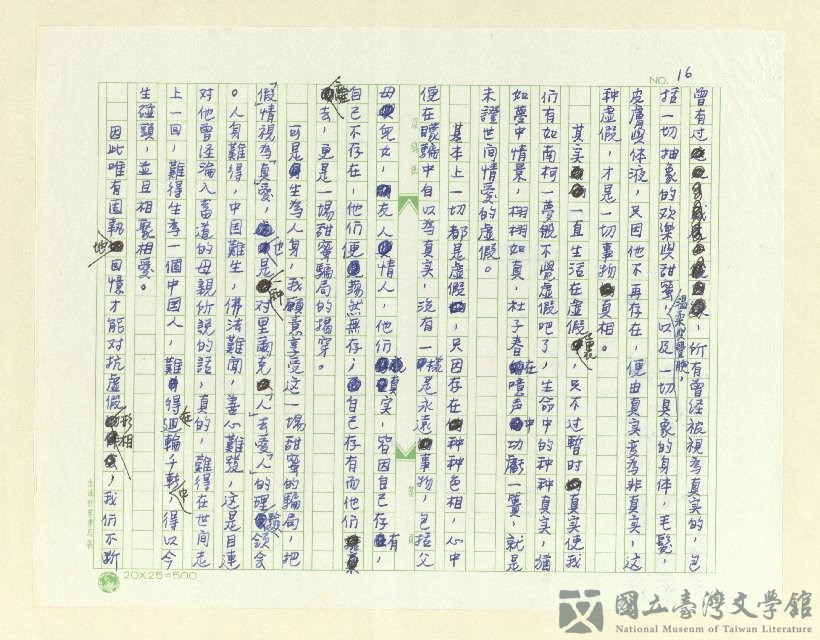 NO. 16
曾有过，所有曾经被视為真实的，包
括一切抽象的欢樂與甜蜜，溫柔與豐腴，以及一切具象的身体，毛髮，
皮膚與体液，只因他不再存在，便由真实变為非真实，这
种虛假，才是一切事物真相。
其实一直生活在虛假裡，只不过暫时真实使我
們有如南柯一夢般不覺虛假吧了，生命中的种种真实，猶
如夢中情景，栩栩如真，杜子春在噫声中功虧一簣，就是
未證世间情愛的虛假。
基本上一切都是虛假，只因存在种种色相，心中
便在矇騙中自以為真实，沒有一樣是永遠事物，包括父
母兒女，克人情人，他们真实，皆因自己存有，
自己不存在，他们便蕩然無存；自己存有而他们
去，更是一場甜蜜騙局的揭穿。
可是生為人身，我願意享受这一場甜蜜的騙局，把
「假」情視為「真」愛，也是一种对里面克「人」去愛「人」的理领会
。人身難得，中国難生，佛法難聞，盡心難發，这是目連
对他曾经淪入畜道的母親所說的話，真的，難得在世间走
上一回，難得生為一個中国人，難得在迴輪千転中，得以今
生碰頭，並且相聚相愛。
因此唯有固執地回憶才能对抗虛假形相，我们不断
20X25=500
國立臺灣文學館
National Museum of Taiwan Literature